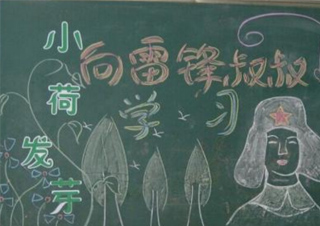 小荷发芽
向雷锋叔叔
学习